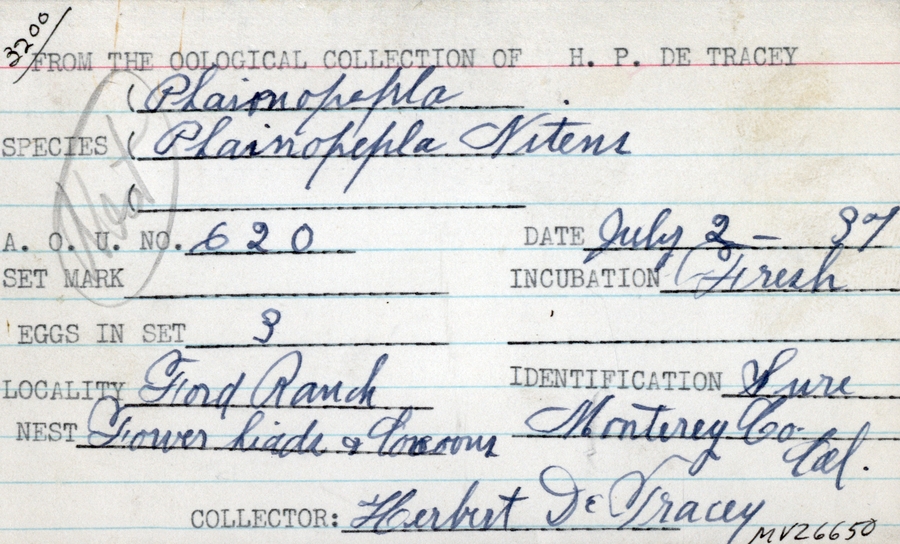 3200
FROM THE OOLOGICAL COLLECTION OF H. P. DE TRACEY
( Phainopepla .
SPECIES ( Phainopepla Nitens
(
A. O. U. NO. 620 DATE July 2 - 37
SET MARK INCUBATION Fresh
EGGS IN SET 3
LOCALITY Ford Ranch IDENTIFICATION Sure
NEST Flower heads & Cocoons Monterey Co. Cal.
COLLECTOR: Herbert De Tracey
MVZ6650